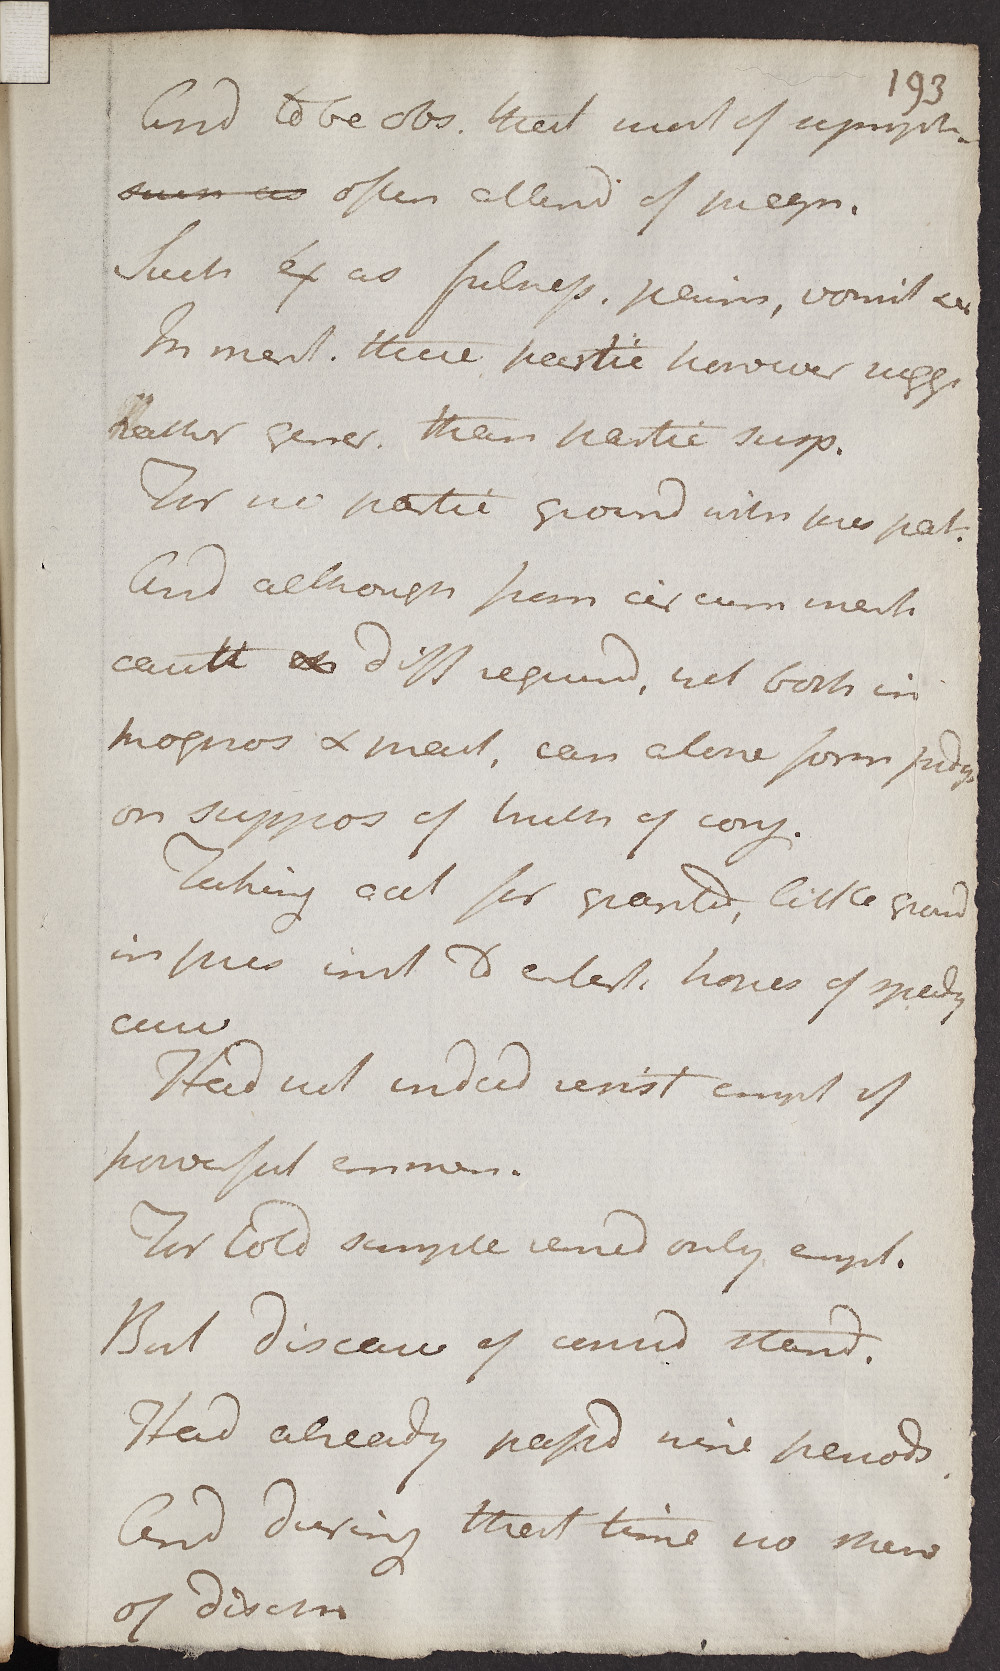 193
And to be obs. that most of symptoms
such as often attend of pregn.
Such ex as fulness. pains, vomit &c
In ment. these partic however sugg.
Rather gener. than partic susp.
For no partic ground with pres pat.
And although from circum ment
cautt diff requird, yet both in
prognos & meat, can alone form judg
on suppos of truth of conj.
Taking act for granted, little ground
in pres inst to entert. hopes of speedy
cure
Had not indeed resist empt of
powerful emmen.
For told simple remed only empl.
But disease of consid stand.
Had already passd nine periods.
And during that time no shew
of disch